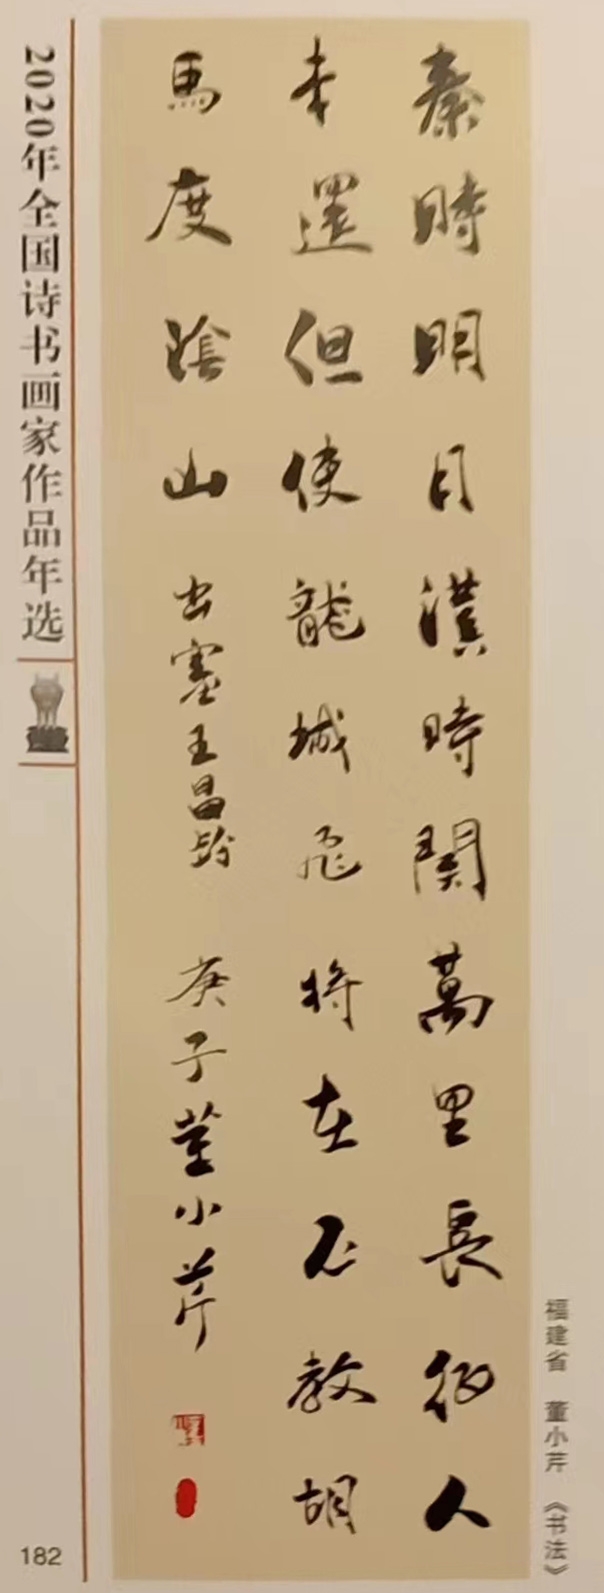 2020年全国诗书画家作品年选
秦時明月漢時関萬里長征人
未還但使龍城飛将在不教胡
馬度陰山 出塞王昌齡 庚子董小芹
福建省 董小芹 《书法》
182